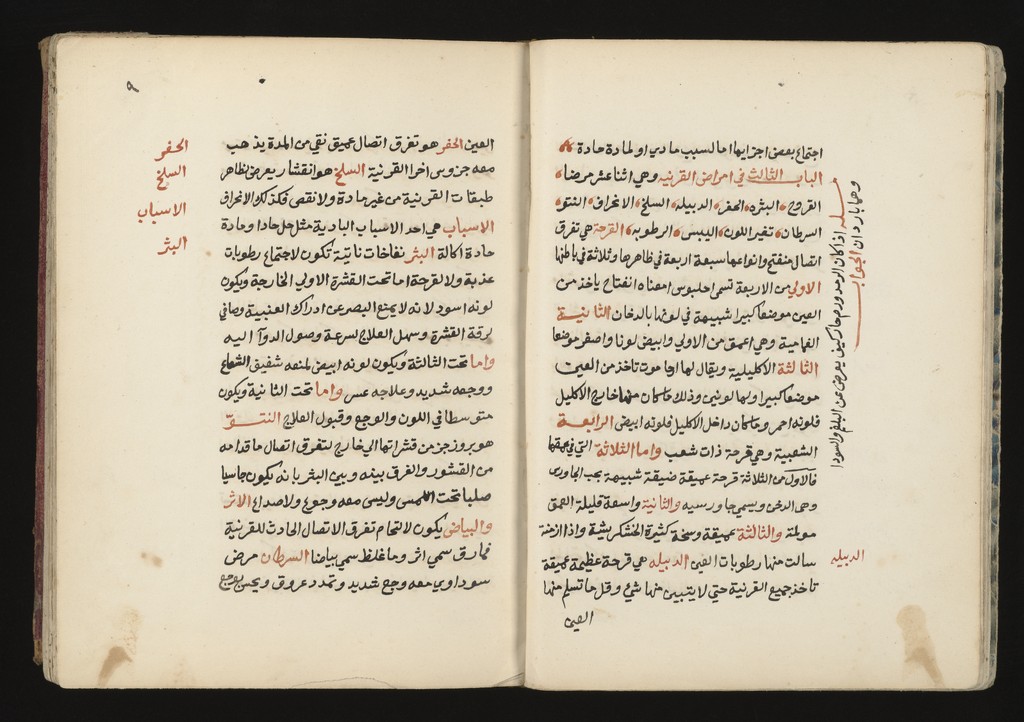 اجتماع بعض اجزايها اما لسبب مادي او لمادة حادة
الباب الثالث في امراض القرنيه وهي اثنا عشر مرضا
القروح البثره الحفر الدبيله السلخ الانحراف النتو
السرطان تغير اللون اليبس الرطوبه القرحة هي تفرق
اتصال منفتح وانواعها سبعة اربعة في ظاهرها وثلاثة في باطنها
الاولي من الاربعة تسمي احلبوس معناه انفتاح ياخذ من
العين موضعا كبيرا شبيهة في لونها بالدخان الثانية
الغمامية وهي اعمق من الاولي وابيض لونا واصغر موضعا
الثالثة الاكليلية ويقال لها تاخذ من العين
موضعا كبيرا ولها لونين وذلك ما كان منها خارج الاكليل
فلونه احمر وما كان داخل الاكليل فلونه ابيض الرابعة
الشعبية وهي قرحة ذات شعب واما الثلاثة التي في عمقها
فالاول من الثلاثة قرحة عميقة ضيقة شبيهة بحب الجاورس
وهي الدخن ويسمي جاورسيه والثانية واسعة قليلة العمق
مولمة والثالثة عميقة وسخة كثيرة الخشكريشة واذا ازمنة
سالت منها رطوبات العين الدبيله هي قرحة عظيمة عميقة
تاخذ جميع القرنية حتي لا يتبين منها شئ وقل ما تسلم منها
العين
مسله اذا كان الرمد ورم حار كيف يعرض عن البلغم والسودا
وهما باردان الجواب
الدبيله
٩
العين الحفر هو تفرق اتصال عميق نقي من المدة يذهب
معه جزو من اخرا القرنية السلخ هو انقشار يعرض لظاهر
طبقات القرنية من غير مادة ولا نقص فكذلك الانحراق
الاسباب هي احد الاسباب البادية مثل خل حاد او مادة
حادة اكالة البثر نفاخات ناتية تكون لاجتماع رطوبات
عذبة ولا لقرحة اما تحت القشرة الاولي الخارجة ويكون
لونه اسود لانه لا يمنع البصر عن ادراك العنبية وصافي
لرقة القشرة وسهل العلاج لسرعة وصول الدوآ اليه
واما تحت الثالثة ويكون لونه ابيض لمنعه شفيق الشعاع
ووجعه شديد وعلاجه عسر واما تحت الثانية ويكون
متوسطا في اللون والوجع وقبول العلاج النتوّ
هو بروز جز من قشراتها الي خارج لتفرق اتصال ما قدامه
من القشور والفرق بينه وبين البثر بانه يكون جاسيا
صلبا تحت اللمس وليس معه وجوع ولا صداع الاثر
والبياض يكون لالتحام تفرق الاتصال الحادث للقرنية
فما رق سمي اثر وما غلظ سمي بياضا السرطان مرض
سوداوي معه وجع شديد وتمدد عروق ويحس بوجع
الحفر
السلخ
الاسباب
البثر